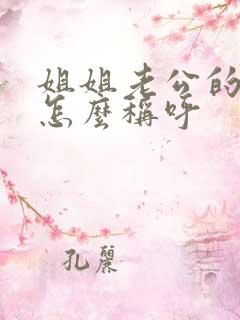 姐姐老公的
怎麼稱呼
孔麗